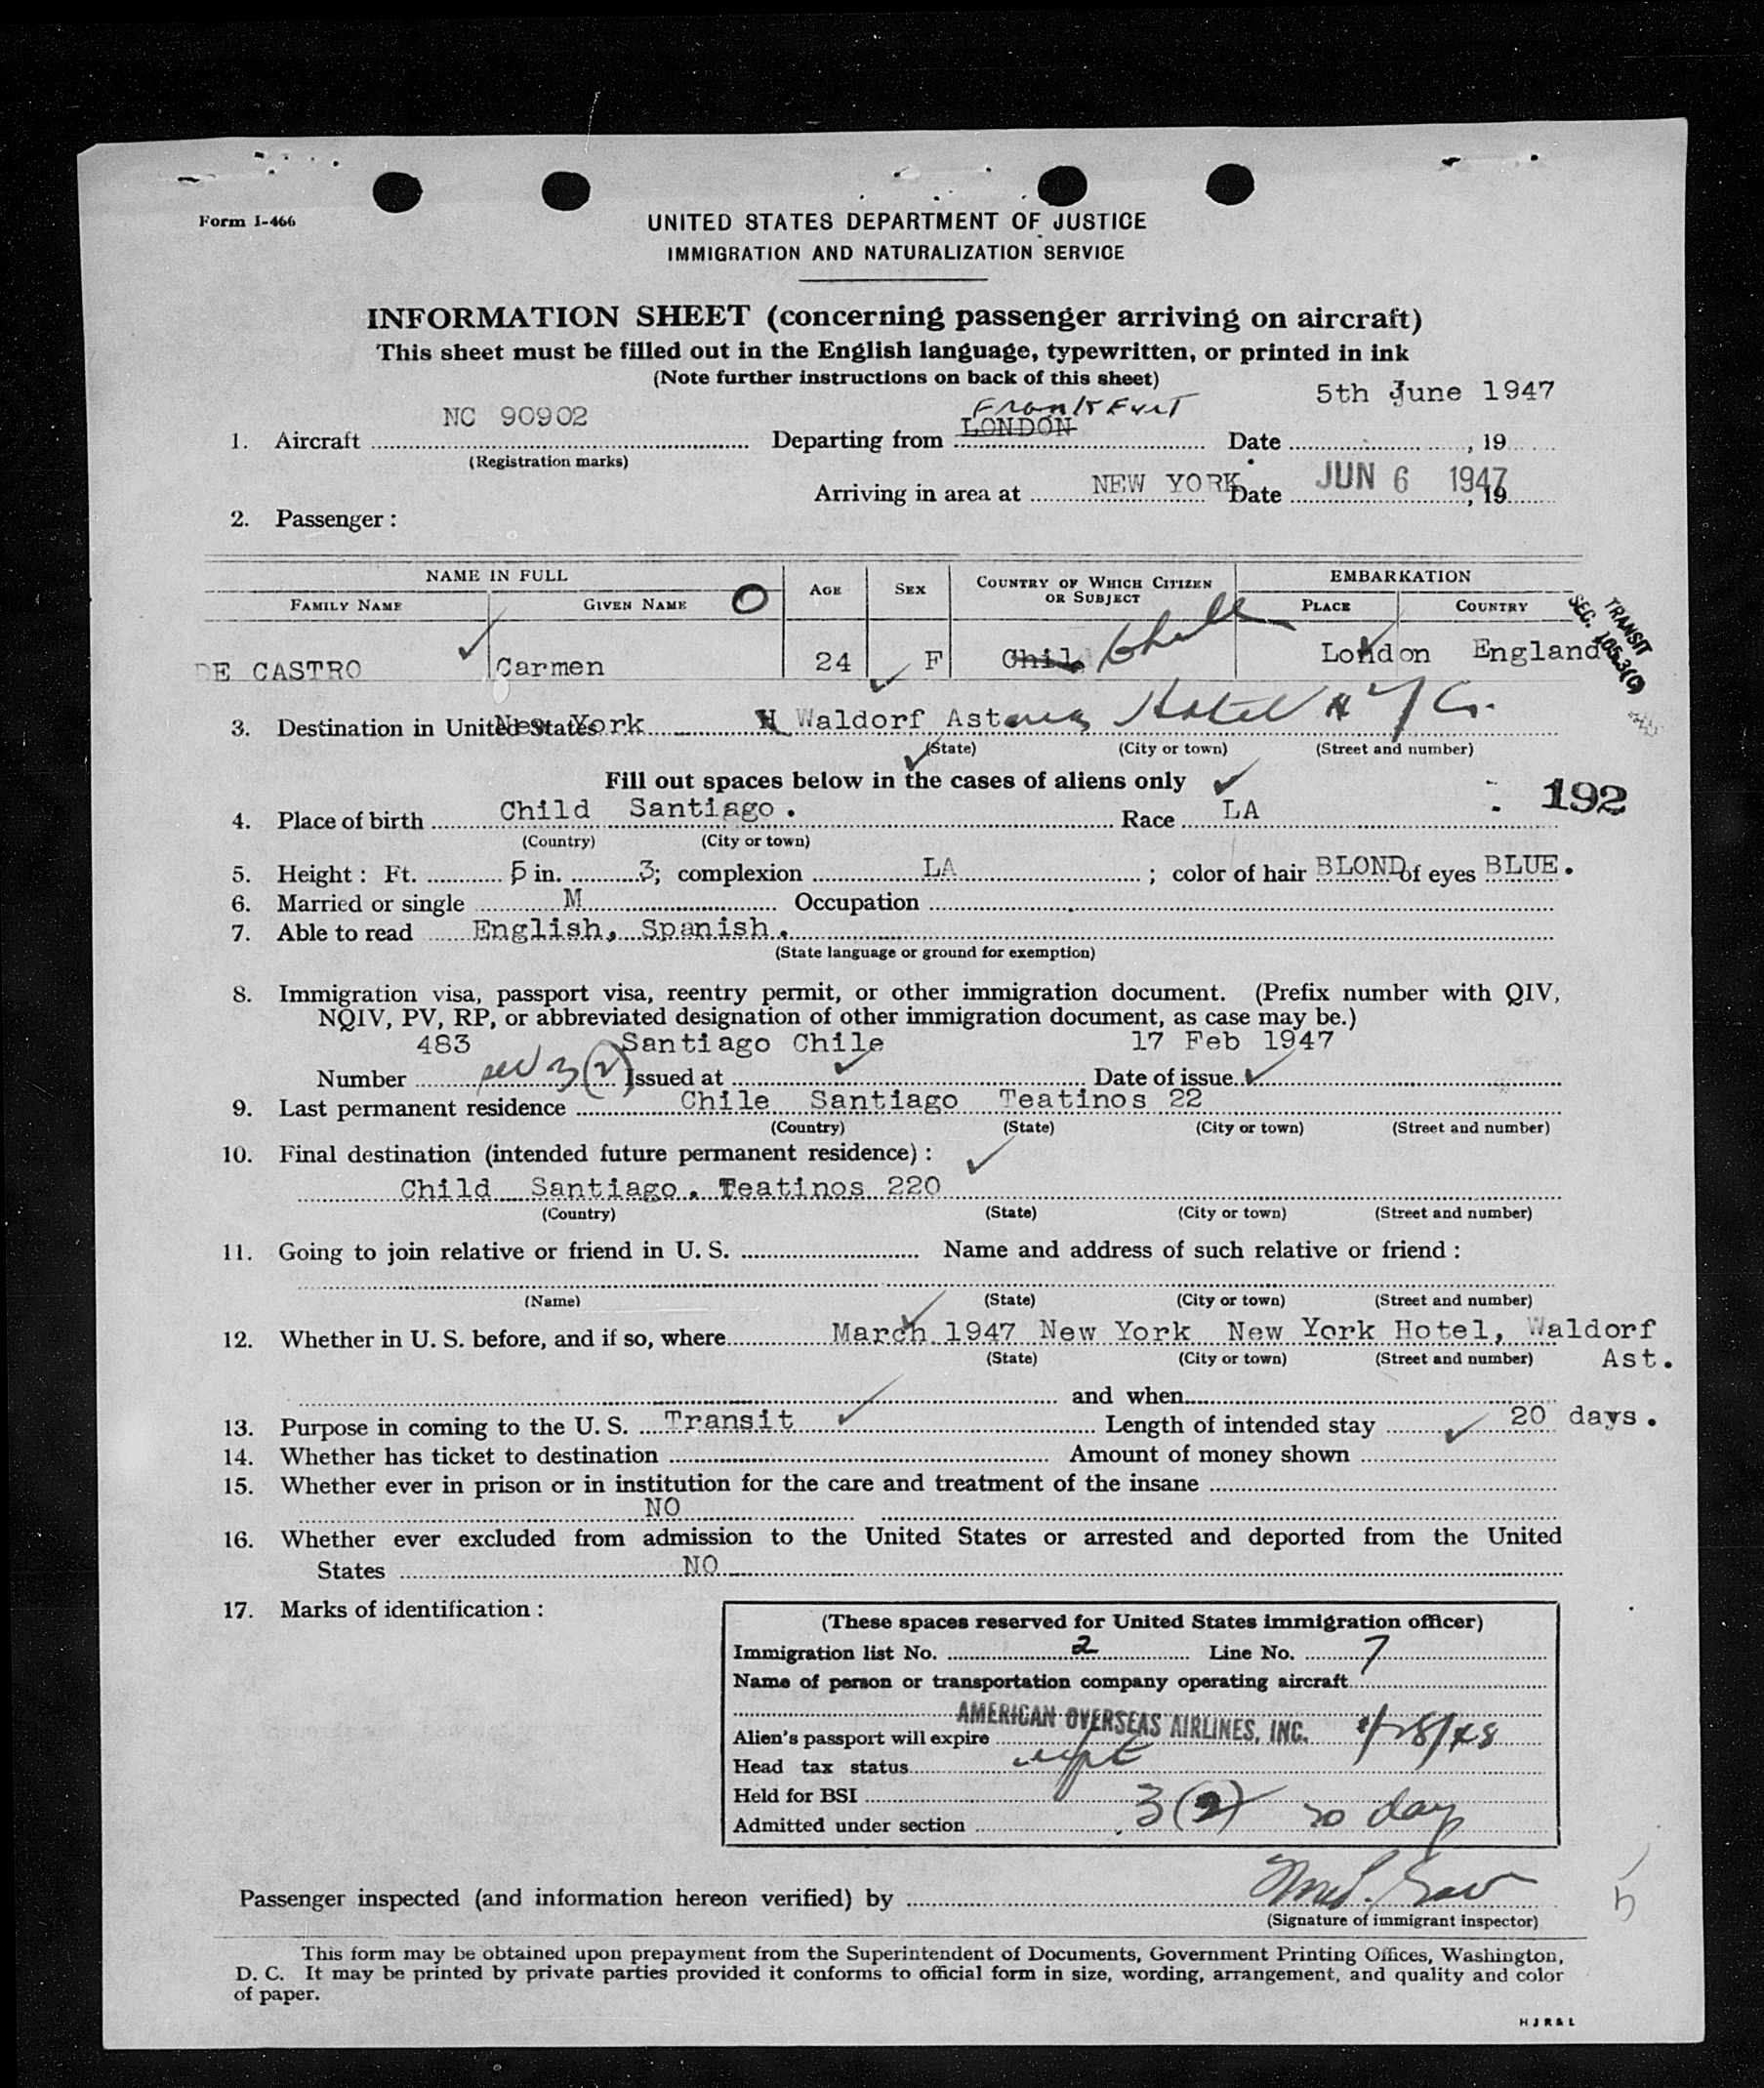 Form I-466
UNITED STATES DEPARTMENT OF JUSTICE
IMMIGRATION AND NATURALIZATION SERVICE
INFORMATION SHEET (concerning passenger arriving on aircraft)
This sheet must be filled out in the English language, typewritten, or printed in ink
(Note further instructions on back of this sheet)
1. Aircraft NC 90902 Departing from LONDON Frankfurt Date 5th June 1947, 19
(Registration marks)
Arriving in area at NEW YORK Date JUN 6 1947, 19
2. Passenger :
NAME IN FULL AGE SEX COUNTRY OF WHICH CITIZEN OR SUBJECT EMBARKATION
FAMILY NAME GIVEN NAME O PLACE COUNTRY
DE CASTRO Carmen 24 F Chil Chile London England
TRANSIT
SEC. 105.3(C)
3. Destination in United States New York H Waldorf Astoria Hotel N Y C.
(State) (City or town) (Street and number)
Fill out spaces below in the cases of aliens only
192
4. Place of birth Child Santiago. Race LA
(Country) (City or town)
5. Height : Ft. 5 in. 3; complexion LA ; color of hair BLOND of eyes BLUE.
6. Married or single M Occupation
7. Able to read English, Spanish.
(State language or ground for exemption)
8. Immigration visa, passport visa, reentry permit, or other immigration document. (Prefix number with QIV,
NQIV, PV, RP, or abbreviated designation of other immigration document, as case may be.)
Number 483 3(2) Issued at Santiago Chile Date of issue 17 Feb 1947
9. Last permanent residence Chile Santiago Teatinos 22
(Country) (State) (City or town) (Street and number)
10. Final destination (intended future permanent residence) :
Child Santiago. Teatinos 220
(Country) (State) (City or town) (Street and number)
11. Going to join relative or friend in U. S. Name and address of such relative or friend :
(Name) (State) (City or town) (Street and number)
12. Whether in U. S. before, and if so, where March 1947 New York New York Hotel, Waldorf
(State) (City or town) (Street and number) Ast.
and when
13. Purpose in coming to the U. S. Transit Length of intended stay 20 days.
14. Whether has ticket to destination Amount of money shown
15. Whether ever in prison or in institution for the care and treatment of the insane
NO
16. Whether ever excluded from admission to the United States or arrested and deported from the United
States NO
17. Marks of identification :
(These spaces reserved for United States immigration officer)
Immigration list No. 2 Line No. 7
Name of person or transportation company operating aircraft
AMERICAN OVERSEAS AIRLINES, INC.
Alien's passport will expire /28/48
Head tax status
Held for BSI
Admitted under section 3(2) 20 day
Passenger inspected (and information hereon verified) by
(Signature of immigrant inspector)
This form may be obtained upon prepayment from the Superintendent of Documents, Government Printing Offices, Washington,
D. C. It may be printed by private parties provided it conforms to official form in size, wording, arrangement, and quality and color
of paper.
H J R & L